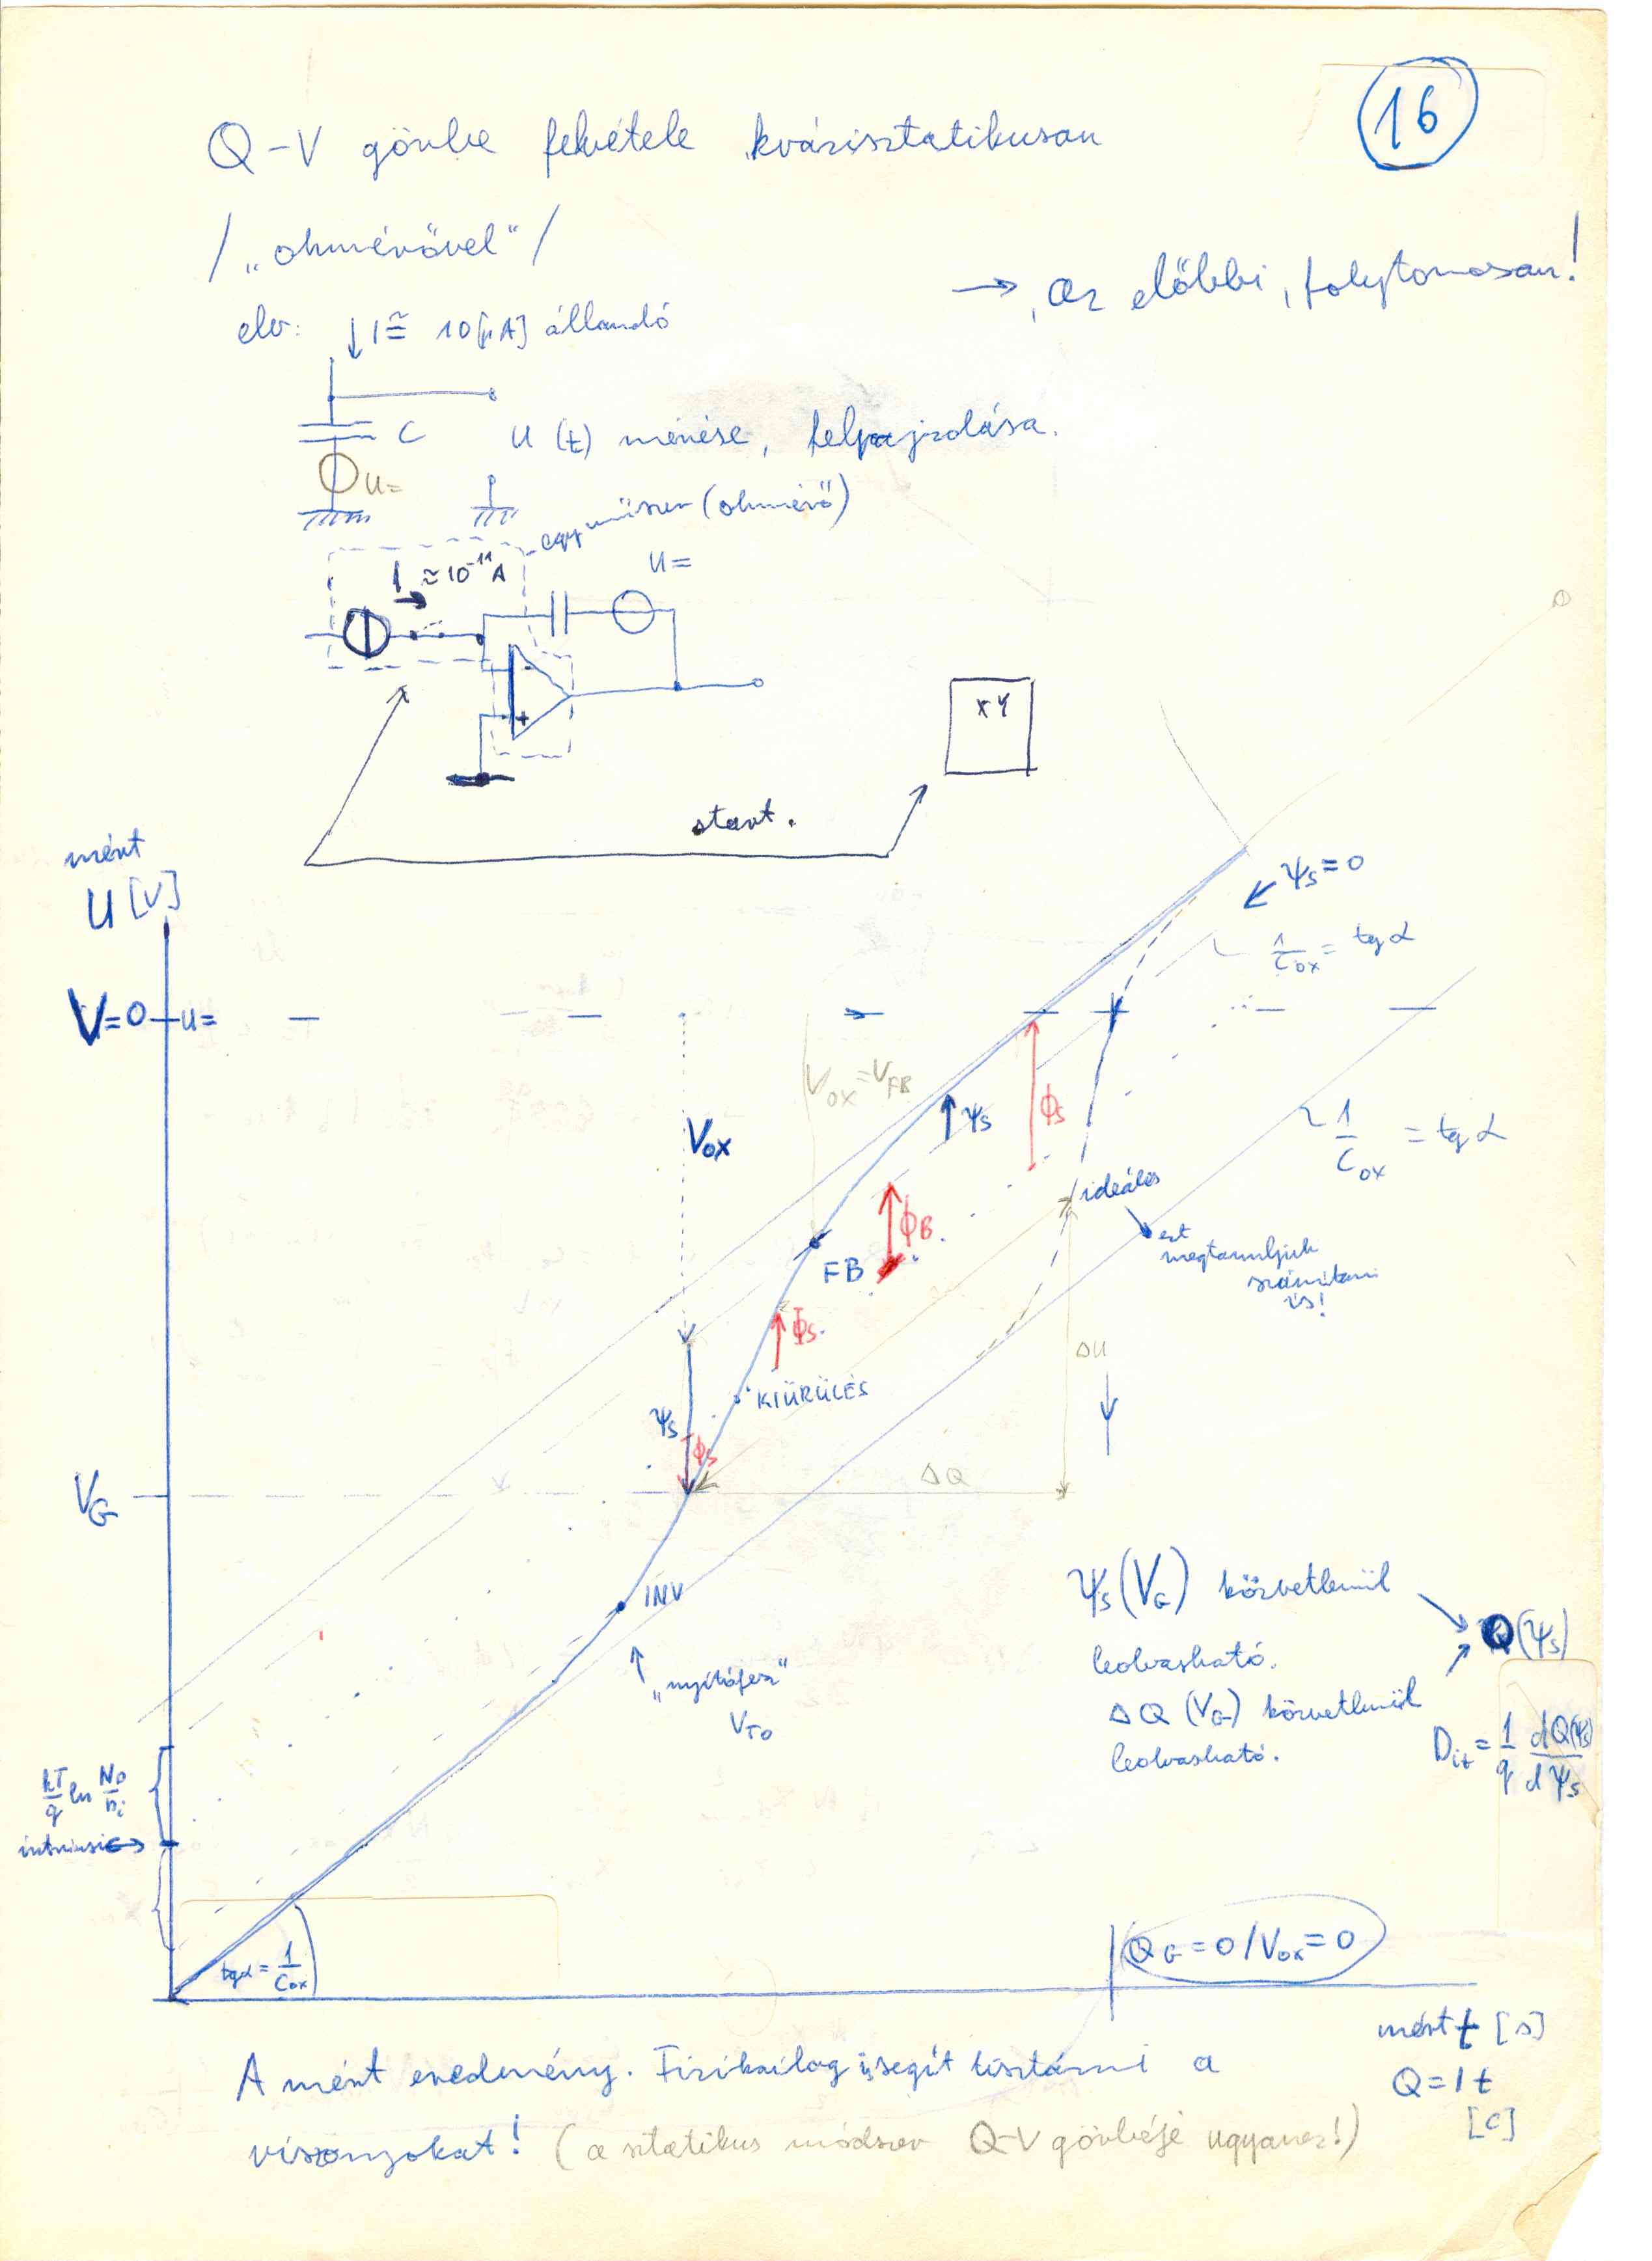 16
Q-V görbe felvétele kvázisztatikusan
/ „ohmérővel" /
→ az előbbi, folytonosan!
elv: ↓ I ≅ 10[pA] állandó
C
U (t) mérése, felrajzolása.
U=
egy műszer (ohmérő)
I ≈ 10⁻¹¹ A
U=
+
XY
start.
mért
U [V]
← ψs = 0
1/Cox = tg α
V=0 U=
Vox = VFB
Vox
ψs
ϕs
1/Cox = tg α
ideális
ezt
megtanuljuk
számítani
is!
ϕB
FB
ϕs
ΔU
KIÜRÜLÉS
ψs
ϕs
ΔQ
VG
INV
ψs (VG) közvetlenül
leolvasható.
Q(ψs)
„nyitófesz"
VT0
ΔQ (VG) közvetlenül
leolvasható.
Dit = 1/q dQ(ψs)/dψs
kT/q ln ND/ni
intrinsic →
tgα = 1/Cox
QG = 0 / Vox = 0
mért t [s]
Q = I t
[C]
A mért eredmény. Fizikailag is segít tisztázni a
viszonyokat! (a sztatikus módszer Q-V görbéje ugyanez!)